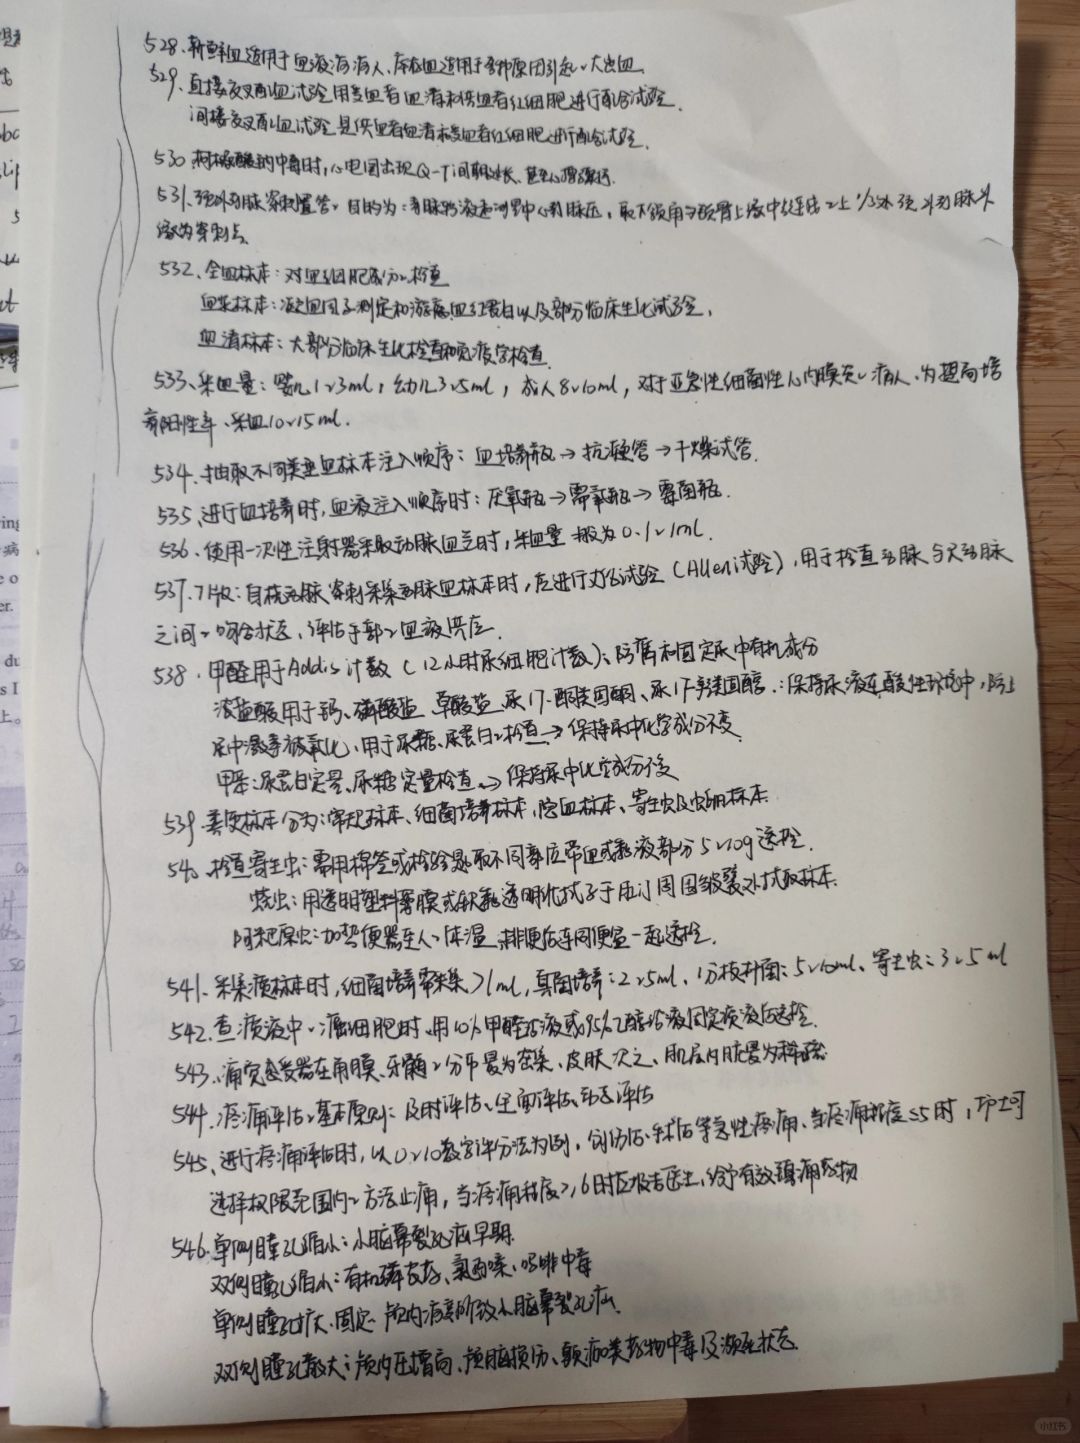 528、新鲜血适用于血液病病人、库存血适用于各种原因引起、大出血
529、直接交叉配血试验用受血者血清和供血者红细胞进行配合试验.
间接交叉配血试验是供血者血清和受血者红细胞进行配合试验.
530、枸橼酸钠中毒时,心电图出现Q-T间期延长、甚至心搏骤停.
531、颈外静脉穿刺置管、目的为:静脉输液,测量中心静脉压,取下颌角与锁骨上缘中点连线之上1/3处颈外静脉外
缘为穿刺点
532、全血标本:对血细胞成分、检查
血浆标本:凝血因子测定和游离血红蛋白以及部分临床生化试验,
血清标本:大部分临床生化检查和免疫学检查
533、采血量:婴儿1~3ml,幼儿3~5ml,成人8~10ml,对于亚急性细菌性心内膜炎、病人、为提高培
养阳性率、采血10~15ml.
534、抽取不同类型血标本注入顺序:血培养瓶→抗凝管→干燥试管.
535、进行血培养时,血液注入顺序时:厌氧瓶→需氧瓶→霉菌瓶.
536、使用一次性注射器采取动脉血气时,采血量一般为0.1~1ml.
537、7版:自桡动脉穿刺采集动脉血标本时,应进行艾伦试验(Allen试验),用于检查动脉与尺动脉
之间、吻合状况,评估手部、血液供应.
538、甲醛用于Addis计数(12小时尿细胞计数)、防腐和固定尿中有机成分
浓盐酸用于钙、磷酸盐、草酸盐、尿17-酮类固醇、尿17-羟类固醇.:保持尿液在酸性环境中,防止
尿中激素被氧化、用于尿糖、尿蛋白、检查→保持尿中化学成分不变
甲苯:尿蛋白定量、尿糖定量检查→保持尿中化学成分不变
539、粪便标本分为:常规标本、细菌培养标本,隐血标本、寄生虫及虫卵标本.
540、检查寄生虫:需用棉签或检验匙取不同部位带血或黏液部分5~10g送检.
蛲虫:用透明塑料薄膜或软黏透明纸拭子于肛门周围皱襞处拭取标本.
阿米巴原虫:加热便器至人、体温、排便后连同便盆一起送检.
541、采集痰标本时,细菌培养需采集>1ml,真菌培养:2~5ml、分枝杆菌:5~10ml、寄生虫:3~5ml
542、查痰液中、癌细胞时,用10%甲醛溶液或95%乙醇溶液固定痰液后送检.
543、痛觉感受器在角膜、牙髓、分布最为密集、皮肤次之、肌层内脏最为稀疏
544、疼痛评估、基本原则:及时评估、全面评估、动态评估
545、进行疼痛评估时,以0~10数字评分法为例,创伤后、手术后等急性疼痛、当疼痛程度≤5时,护士可
选择权限范围内、方法止痛,当疼痛程度≥6时应报告医生,给予有效镇痛药物
546、单侧瞳孔缩小:小脑幕裂孔疝早期.
双侧瞳孔缩小:有机磷农药、氯丙嗪、吗啡中毒
单侧瞳孔扩大、固定:颅内病变所致小脑幕裂孔疝.
双侧瞳孔散大:颅内压增高、颅脑损伤、颠茄类药物中毒及濒死状态
小红书